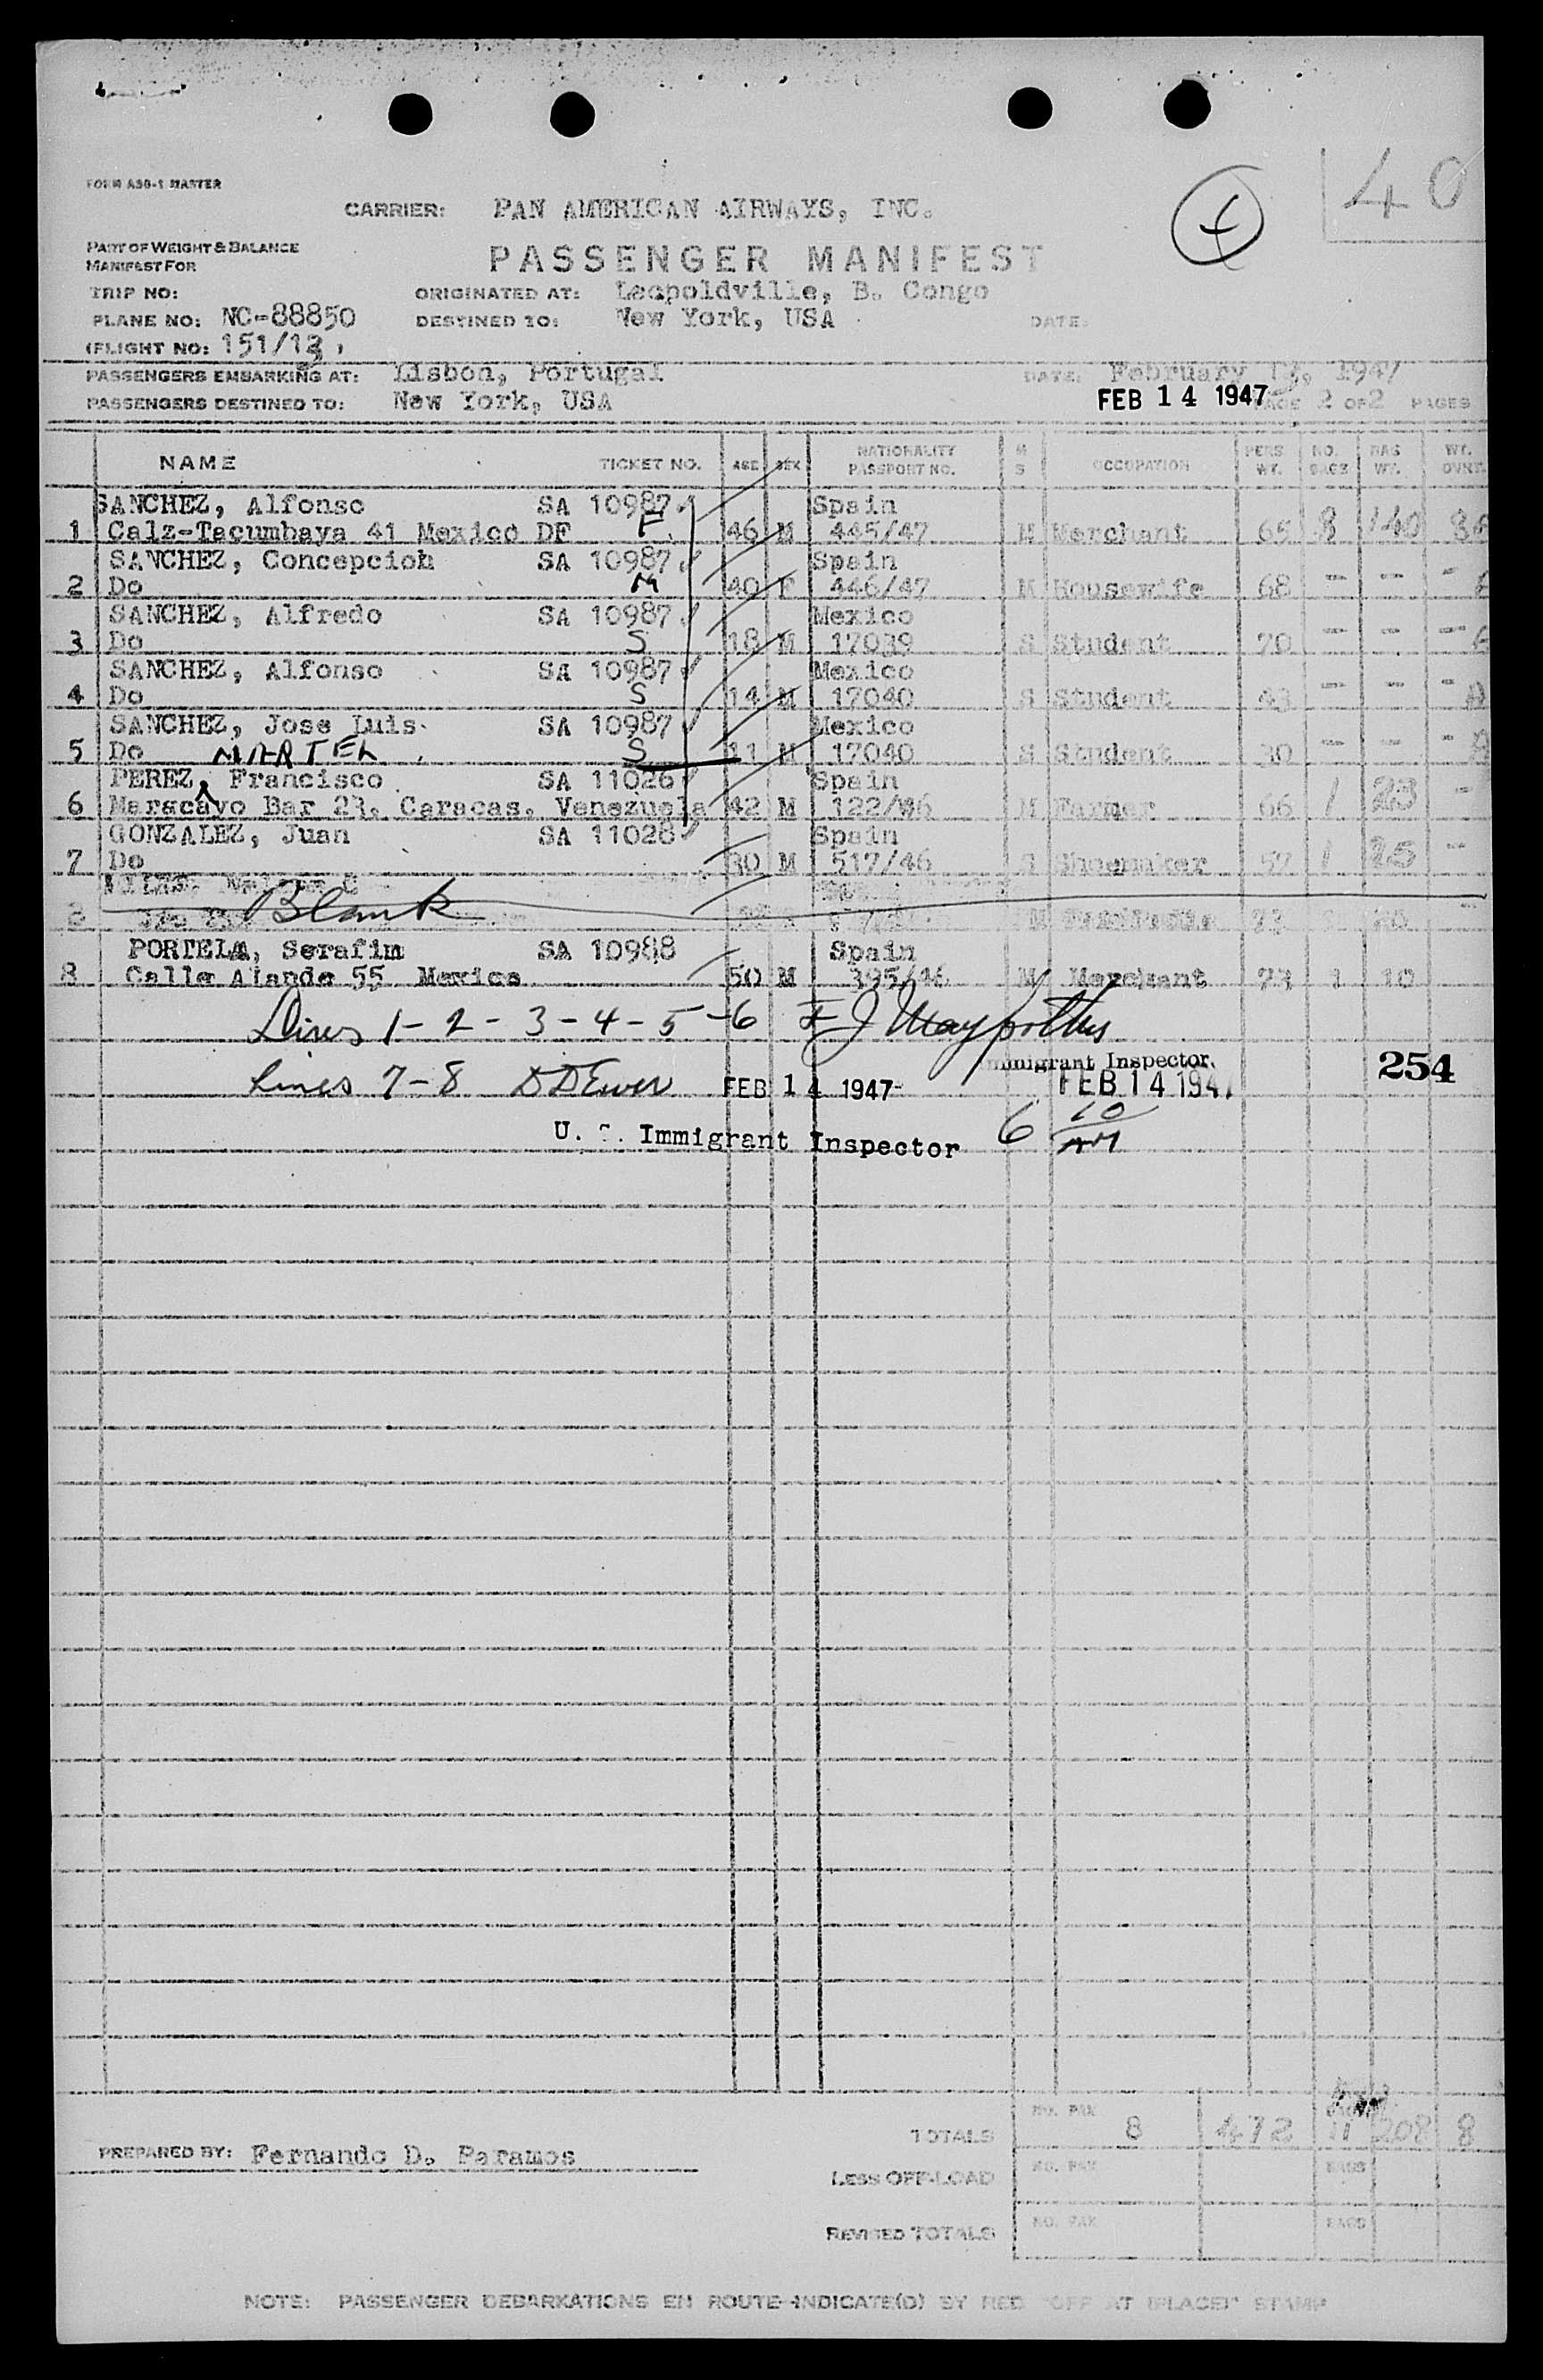 FORM ASO-1 MASTER
40
CARRIER: PAN AMERICAN AIRWAYS, INC.
PART OF WEIGHT & BALANCE
MANIFEST FOR
PASSENGER MANIFEST
TRIP NO: ORIGINATED AT: Leopoldville, B. Congo
PLANE NO: NC-88850 DESTINED TO: New York, USA DATE:
(FLIGHT NO: 151/13
PASSENGERS EMBARKING AT: Lisbon, Portugal DATE: February 1947
PASSENGERS DESTINED TO: New York, USA FEB 14 1947 PAGE 2 OF 2 PAGES
NAME TICKET NO. AGE SEX NATIONALITY PASSPORT NO. M S OCCUPATION PERS. WT. NO. BAGS BAG WT. WT. OVNT.
SANCHEZ, Alfonso SA 10987 Spain
1 Calz-Tacumbaya 41 Mexico DF F 46 M 445/47 M Merchant 65 8 140
SANCHEZ, Concepcion SA 10987 Spain
2 Do M 40 F 446/47 M Housewife 68 - - -
SANCHEZ, Alfredo SA 10987 Mexico
3 Do S 18 M 17039 S Student 70 - - -
SANCHEZ, Alfonso SA 10987 Mexico
4 Do S 14 M 17040 S Student 43 - - -
SANCHEZ, Jose Luis SA 10987 Mexico
5 Do MARTEL S 11 M 17040 S Student 30 - - -
PEREZ, Francisco SA 11026 Spain
6 Maracayo Bar 23, Caracas, Venezuela 42 M 122/46 M Farmer 66 1 23 -
GONZALEZ, Juan SA 11028 Spain
7 Do 30 M 517/46 S Shoemaker 57 1 -
Blank
PORTELA, Serafin SA 10988 Spain
8 Calle Alande 55 Mexico 50 M 395/46 M Merchant 73 1 10
Lines 1-2-3-4-5-6 F J
Immigrant Inspector 254
Lines 7-8 D D Ewer FEB 14 1947 FEB 14 1947
U. S. Immigrant Inspector 6 10 AM
TOTALS NO. PAX 8 472 11 208 8
PREPARED BY: Fernando D. Paramos
LESS OFF-LOAD NO. PAX BAGS
REVISED TOTALS NO. PAX BAGS
NOTE: PASSENGER DEBARKATIONS EN ROUTE INDICATE(D) BY RED "OFF AT (PLACE)" STAMP